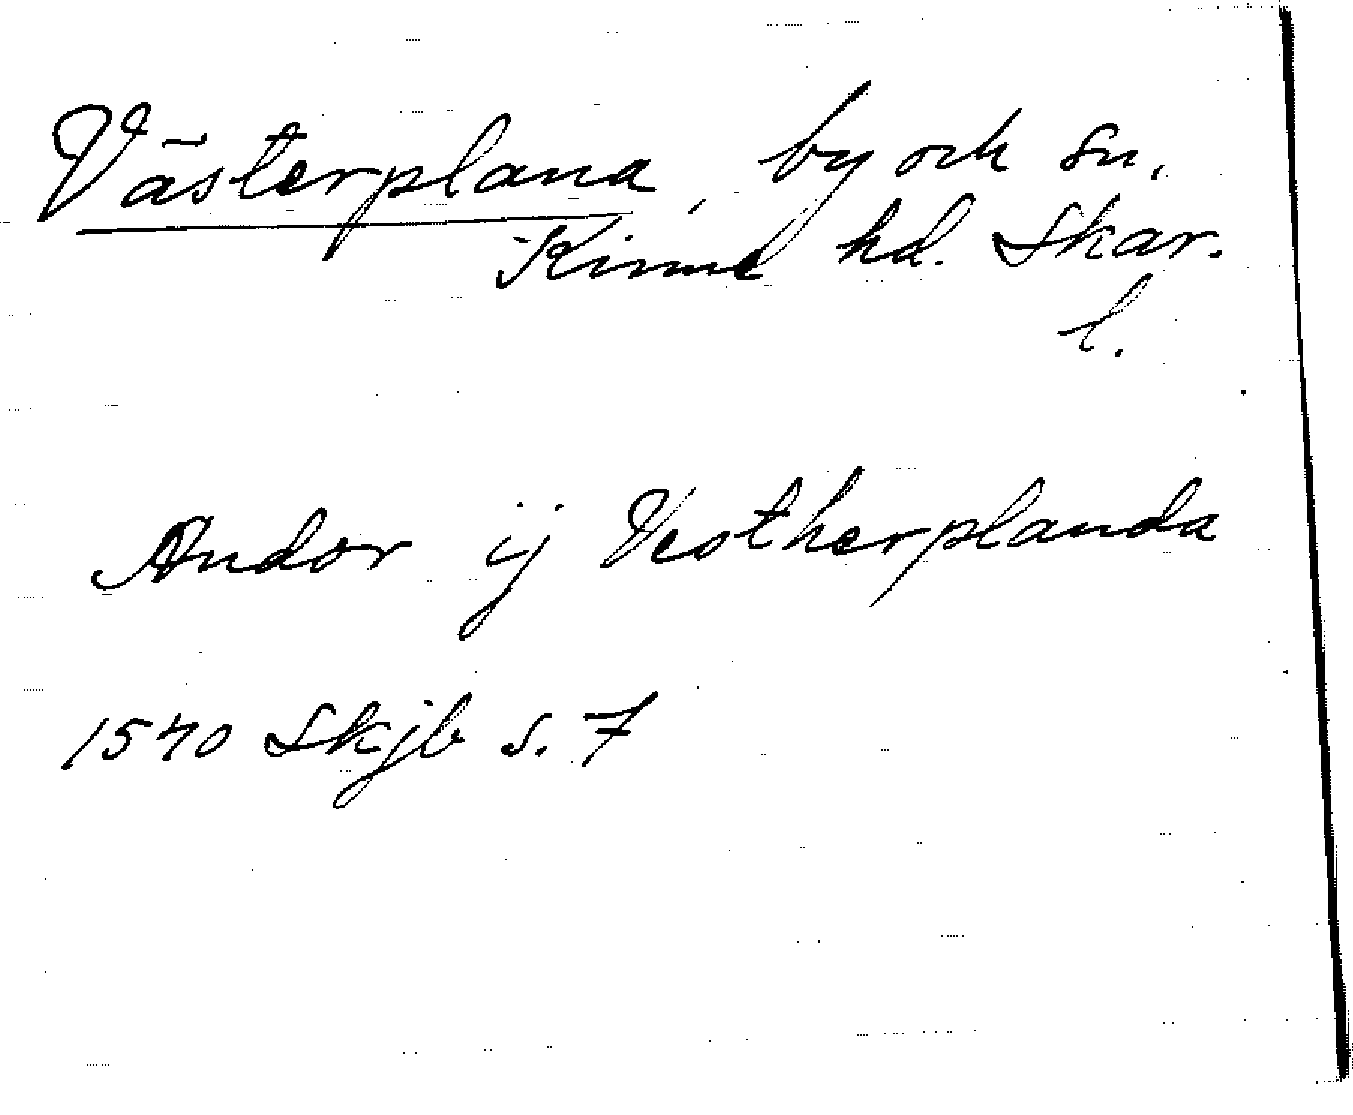 Västerplana, by och sn,
Kinne hd. Skar.
l.
Andor ij Vestherplanda
1540 Skjb s. 7